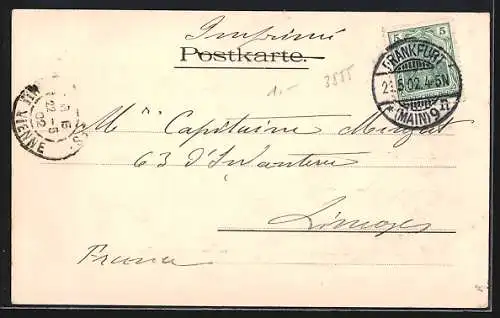 Imprimé
Postkarte.
1.-
5 5
FRANKFURT
5.02. 4-5N
(MAIN) 9
22-5
02
VIENNE
Mr Capitaine
63 d'Infanterie
Limoges
France